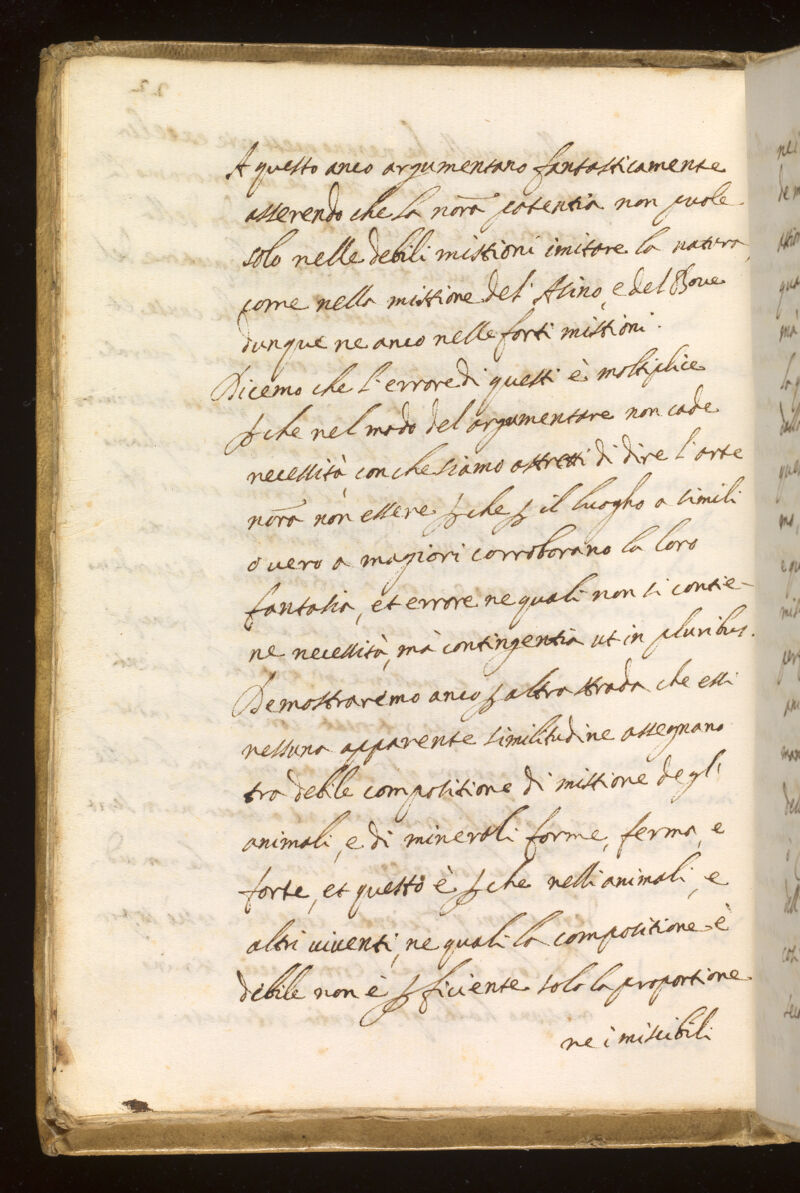 A questo anco argumentano fantasticamente
asserendo che la nora potentia non puole
solo nelle debili mistioni imitare la natura,
come nella mistione del' Asino, e del Boue
dunque ne anco nelle forti mistioni.
Dicemo che l'errore di questi è moltiplice
p che nel modo del argumentare non cade
necessità, con che siamo astretti di dire l'arte
nora non essere p che p il luogho a simili
o vero a magiori corroborano la loro
fantasia, et errore ne quali non si contie-
ne necessità, mà contingentia ut in pluribus.
Demostraremo anco p altra strada che essi
nessuna apparente similitudine assegnano
tra debile compositione di mistione degl'
animali, e di minerali forme, ferma, e
forte, et questo è p che nelli animali, e
altri viventi, ne quali la compositione è
debile non è pficiente solo la proportione
ne i miscibili